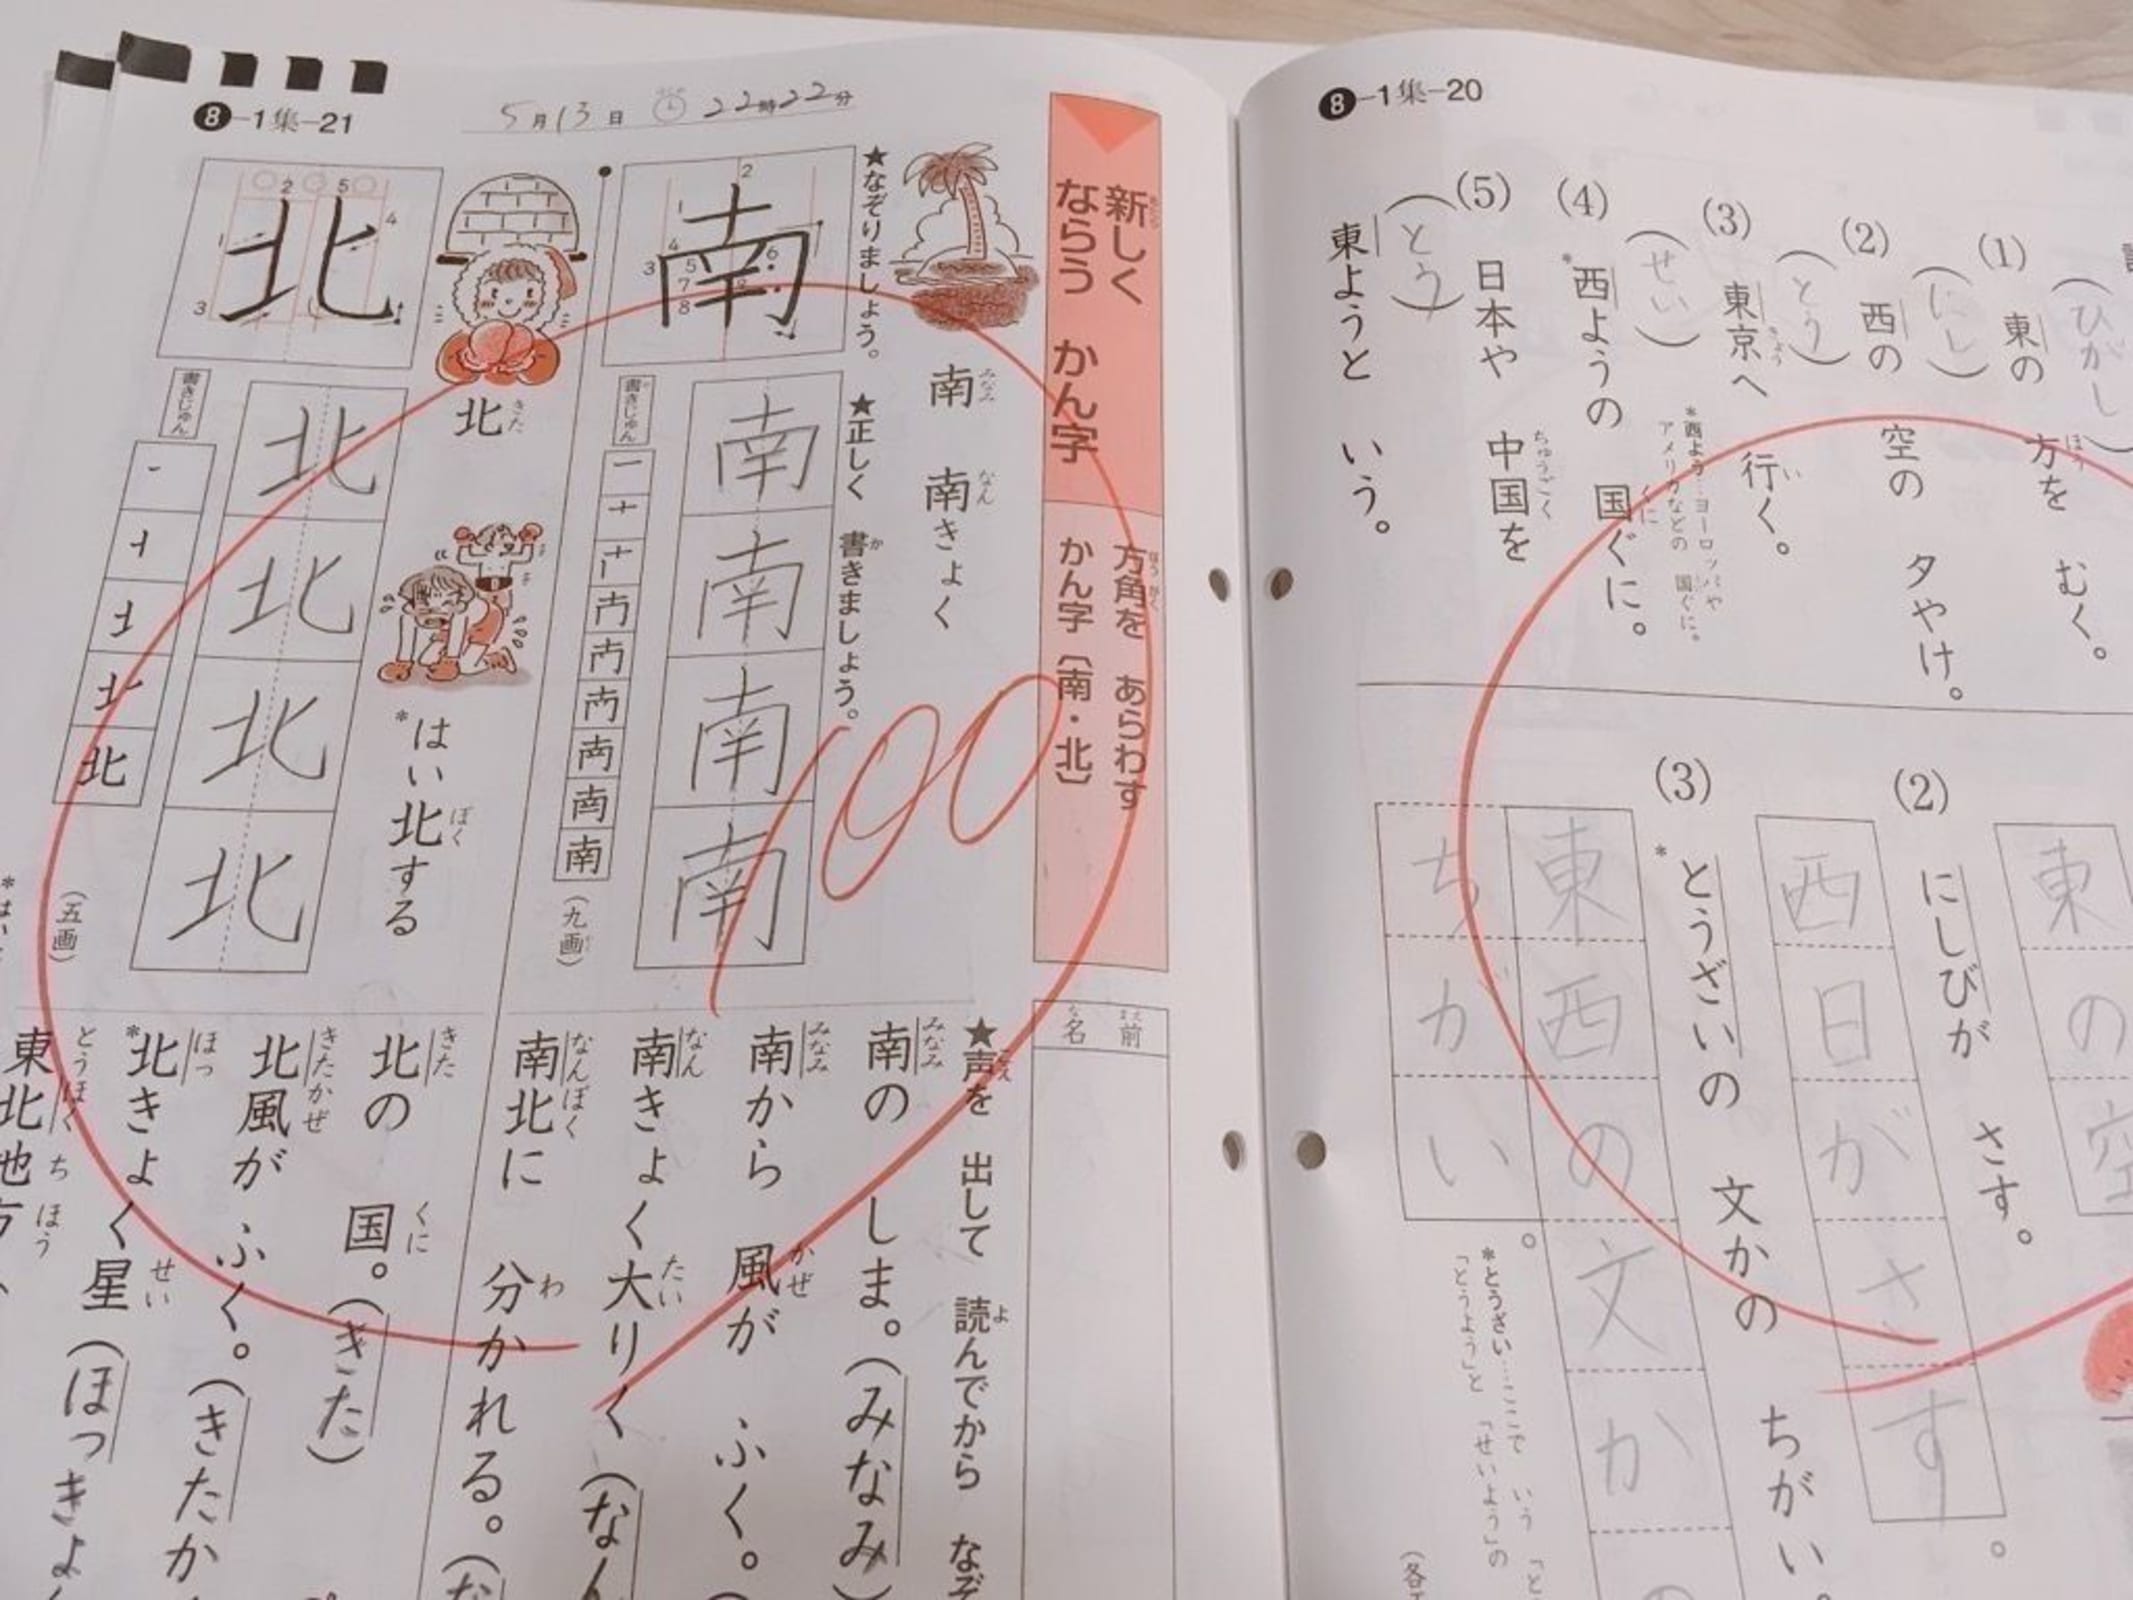 8-1集-20
(ひがし)
(1) 東の 方を むく。
(にし)
(2) 西の 空の 夕やけ。
(とう)
(3) 東京へ 行く。
*西よう…ヨーロッパや
アメリカなどの 国ぐに。
(せい)
(4) *西ようの 国ぐに。
(5) 日本や 中国を
(とう)
東ようと いう。
東の空
(2) にしびが さす。
西日がさす。
(3) *とうざいの 文かの ちがい。
東西の文か
ちがい。
*とうざい…ここで いう 「と
「とうよう」と 「せいよう」の
8-1集-21
5月13日 22時22分
新しく
ならう かん字
方角を あらわす
かん字〔南・北〕
名前
南 南きょく
みなみ なん
★なぞりましょう。 ★正しく 書きましょう。
南
南
南
南
南
書きじゅん
南
(九画)
北
きた
*はい北する
ぼく
北
北
北
北
北
書きじゅん
北
(五画)
★声を 出して 読んでから なぞ
南の しま。(みなみ)
南から 風が ふく。(
南きょく大りく (なん
南北に 分かれる。(な
北の 国。(きた)
北風が ふく。(きたか
*北きょく星 (ほっきょ
東北地方